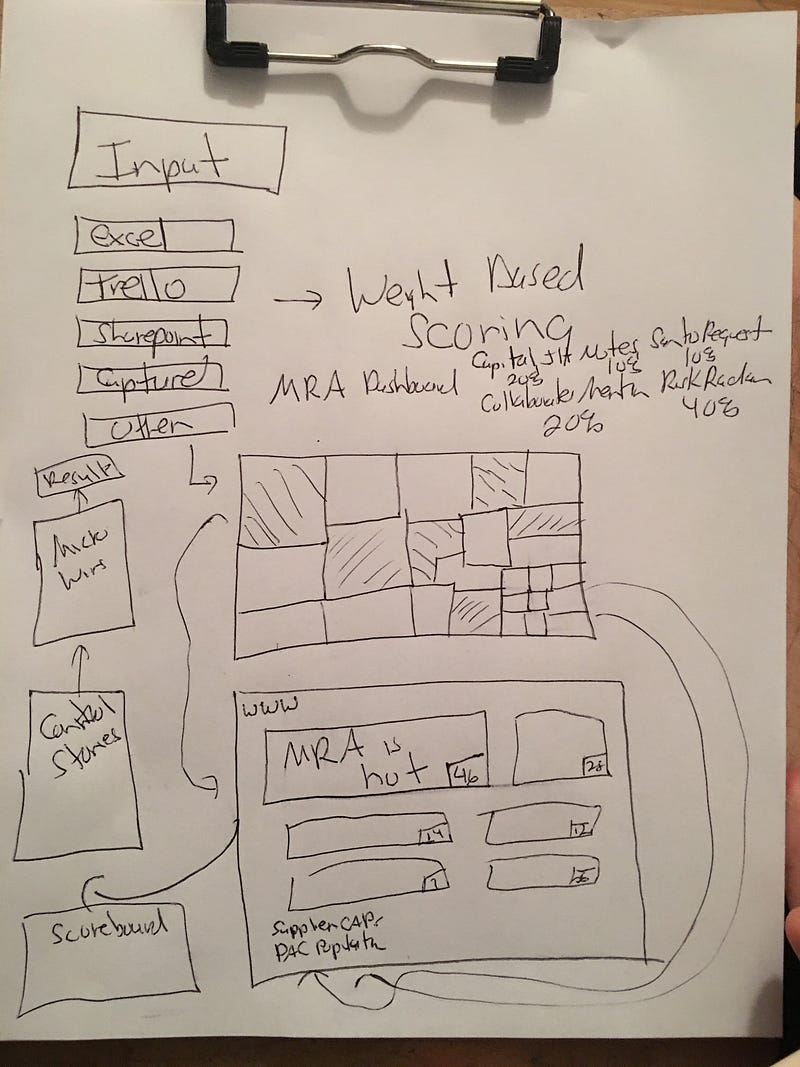 Input
excel
trello
Sharepoint
Capture
→ Weight Based
Scoring
MRA Dashboard
Capital
20%
Notes
10%
Request
10%
20%
Risk Radar
40%
Result
Micro
Wins
Control
Stories
Scoreboard
www
MRA is
hot
46
28
14
12
7
CAPs
PAC